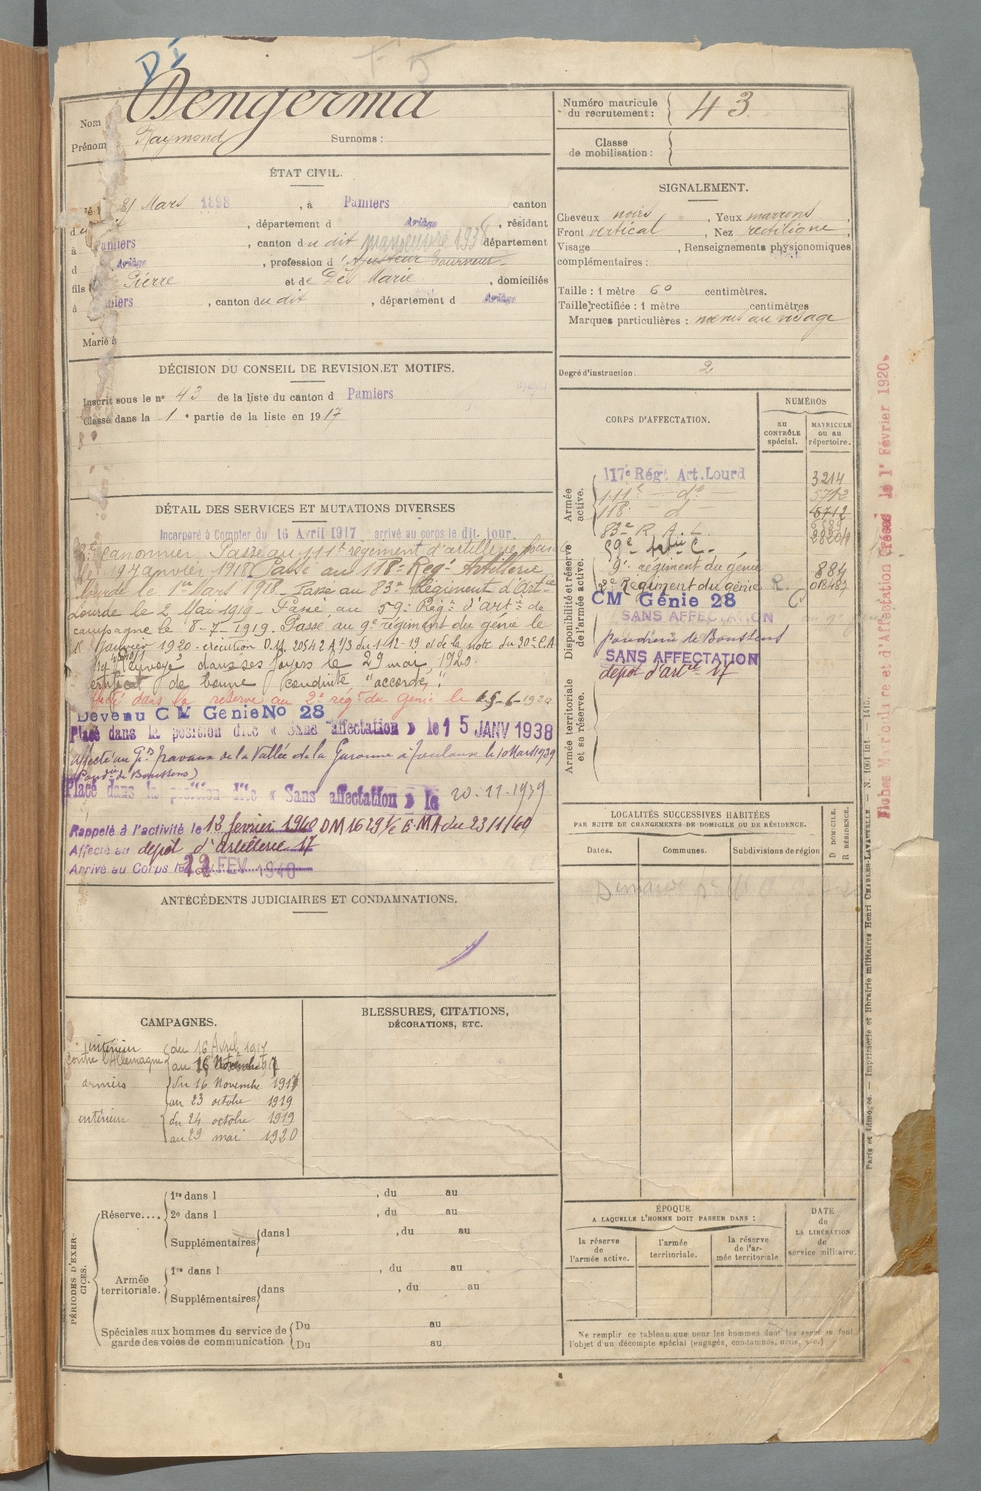 Nom Dengerma
Prénom Raymond Surnoms :
Numéro matricule du recrutement : 43
Classe de mobilisation :
ÉTAT CIVIL.
Mars 1898, à Pamiers canton
, département d Ariège, résidant
à Pamiers, canton du dit manoeuvre 193 département
d Ariège, profession d'Ajusteur tourneur
fils Pierre et de Dès Marie, domiciliés
à Pamiers, canton du dit, département d Ariège
Marié à
SIGNALEMENT.
Cheveux noirs, Yeux marrons,
Front vertical, Nez rectiligne,
Visage , Renseignements physionomiques
complémentaires :
Taille : 1 mètre 60 centimètres.
Taille rectifiée : 1 mètre centimètres
Marques particulières : au visage
Degré d'instruction. 2
DÉCISION DU CONSEIL DE REVISION ET MOTIFS.
Inscrit sous le n° 43 de la liste du canton d Pamiers
Classé dans la 1e partie de la liste en 1917
DÉTAIL DES SERVICES ET MUTATIONS DIVERSES
Incorporé à Compter du 16 Avril 1917 arrivé au corps le dit jour.
canonnier. Passé au 111e régiment d'artillerie lourde
le 19 Janvier 1918. Passé au 118e Régt Artillerie
lourde le 1er Mars 1918. Passé au 83e Régiment d'Artie
Lourde le 2 Mai 1919. Passé au 59e Régt d'Artie de
campagne le 8-7-1919. Passé au 9e régiment du génie le
Janvier 1920. exécution D.M. 20542 A 1/3 du 1-12-19 et de la note du 20e C.A.
Renvoyé dans ses foyers le 29 mai 1920.
certificat de bonne conduite "accordé".
dans la réserve au 2e régt du génie le 15-6-1920
Devenu CM Génie No 28
Placé dans la position dite « Sans affectation » le 15 JANV 1938
Affecté au Gds Travaux de la Vallée de la Garonne à Toulouse le 10 Mars 1939
(Poudrie de Boussens)
Placé dans la position dite « Sans affectation » le 20-11-1939
Rappelé à l'activité le 13 février 1940 DM
Affecté au dépôt d'Artillerie 17
Arrivé au Corps le 22 FEV 1940
CORPS D'AFFECTATION.
NUMÉROS
au CONTRÔLE spécial.
MATRICULE OU AU répertoire.
Armée active.
117e Régt Art. Lourd 3214
111e d° 5712
118e d° 6712
83e R.A.L.
59e Artie C.
Disponibilité et réserve de l'armée active.
9e régiment du génie 884
2e Régiment du génie
CM Génie 28
SANS AFFECTATION
poudrerie de Boussens
SANS AFFECTATION
dépôt d'artie 17
Armée territoriale et sa réserve.
Fiches Matricule et d'Affectation Créées le 1er Février 1920.
LOCALITÉS SUCCESSIVES HABITÉES
PAR SUITE DE CHANGEMENTS DE DOMICILE OU DE RÉSIDENCE.
Dates. Communes. Subdivisions de région
D DOMICILE. R RÉSIDENCE.
ANTÉCÉDENTS JUDICIAIRES ET CONDAMNATIONS.
CAMPAGNES.
BLESSURES, CITATIONS, DÉCORATIONS, ETC.
Contre l'Allemagne
intérieur du 16 Avril 1917
au 15 Novembre 17
armées du 16 Novembre 1917
au 23 octobre 1919
intérieur du 24 octobre 1919
au 29 mai 1920
PÉRIODES D'EXERCICES.
Réserve....
1re dans l , du au
2e dans l , du au
Supplémentaires dans l , du au
Armée territoriale.
1re dans l , du au
Supplémentaires dans , du au
Spéciales aux hommes du service de garde des voies de communication
Du au
Du au
ÉPOQUE
A LAQUELLE L'HOMME DOIT PASSER DANS :
la réserve de l'armée active.
l'armée territoriale.
la réserve de l'armée territoriale
DATE de LA LIBÉRATION du service militaire.
Ne remplir ce tableau que pour les hommes dont les services font
l'objet d'un décompte spécial (engagés, condamnés, omis, etc.)
Paris et Limoges. — Imprimerie et librairie militaires Henri CHARLES-LAVAUZELLE